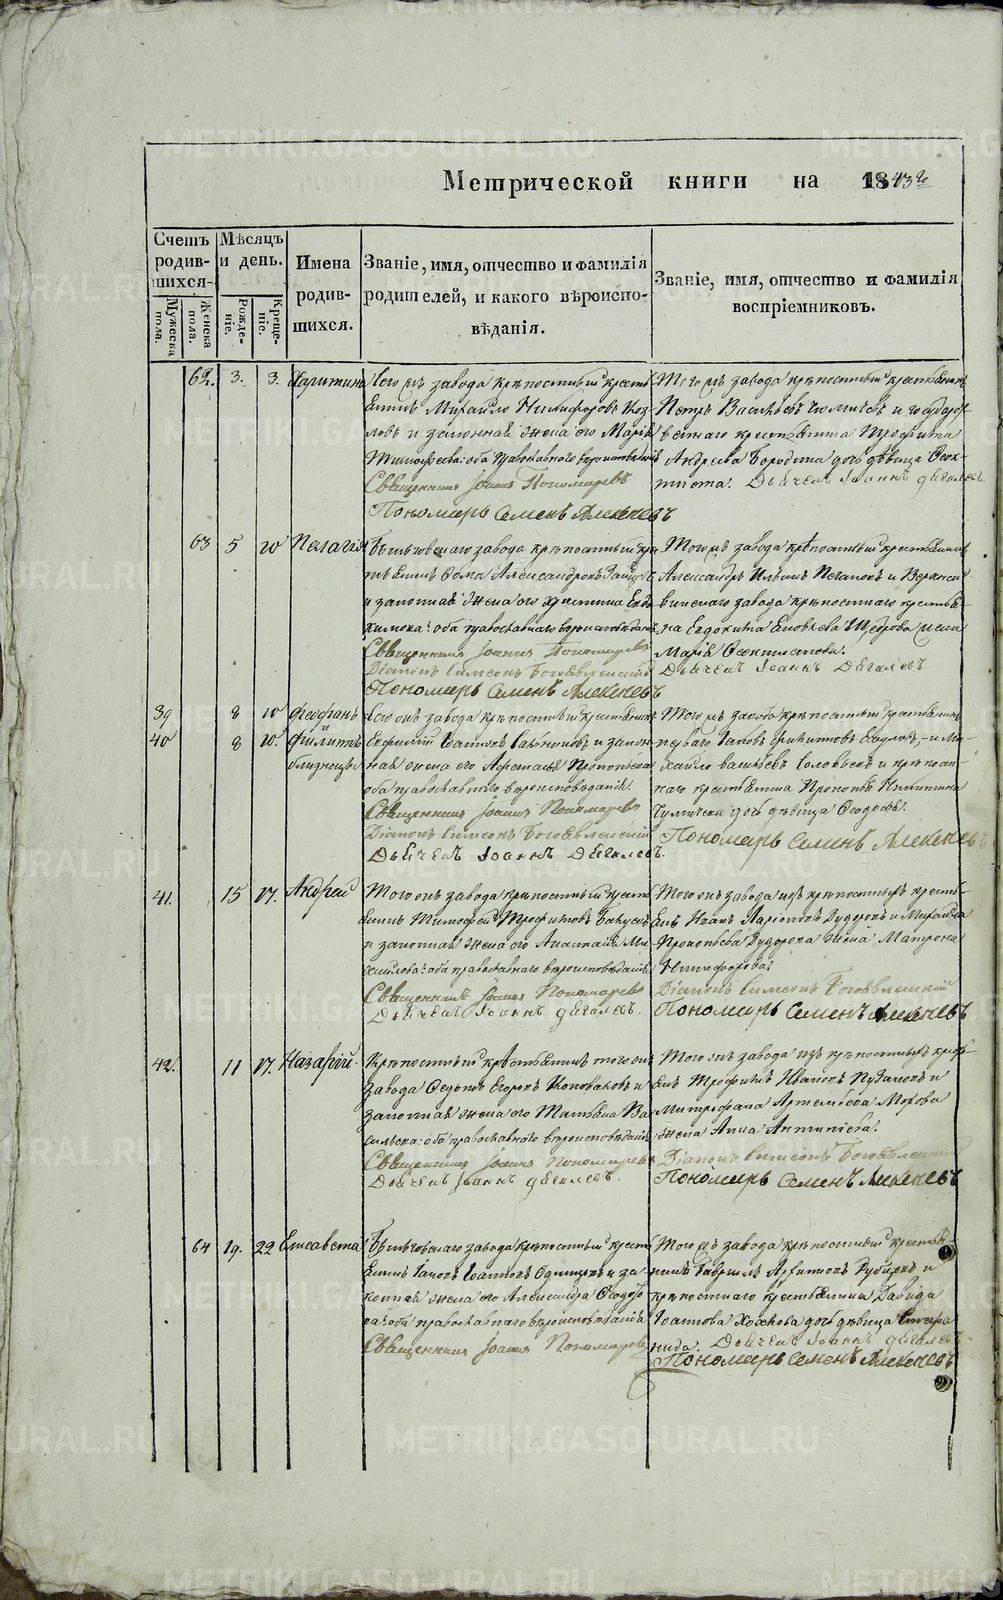 Метрической книги на 1843 го
Счетъ родив-шихся.
Мѣсяцъ и день.
Имена родив-шихся.
Званіе, имя, отчество и фамилія родителей, и какого вѣроиспо-вѣданія.
Званіе, имя, отчество и фамилія воспріемниковъ.
Мужеска пола.
Женска пола.
Рожде-ніе.
Креще-ніе.
62. 3. 3. Харитина
завода крѣпостный кресть
янинъ Михайло Никифоровъ Коз
ловъ и законная жена его Марія
Тимофеева: оба православнаго вѣроисповѣданія
Священникъ Іоаннъ Пономаревъ
Пономарь Семенъ Алексѣевъ
Того жъ завода крѣпостный крестьянинъ
Петръ Васильевъ и государ
крестьянина Трофима
Андреева Бородина дочь дѣвица Ѳеок
тиста. Дьячекъ Іоаннъ Дягалевъ
63 5 10 Пелагія
завода крѣпостный кре
Ѳома Александровъ
и законная жена его Христина Евдо
кимова: оба православнаго вѣроисповѣданія
Священникъ Іоаннъ Пономаревъ
Діаконъ Симеонъ Богоявленскій
Пономарь Семенъ Алексѣевъ
Того жъ завода крѣпостный крестьянинъ
Александръ Ильинъ и Верхнесы
винскаго завода крѣпостнаго крестья
на Евдокима Яковлева Щедрова жена
Марія Ѳеоктистова.
Дьячекъ Іоаннъ Дягалевъ
39 8 10 Феофанъ
40 8 10. и Филитъ
близнецы
завода крѣпостный крестьянинъ
и закон
ная жена его Афанасія Прокопьева
оба православнаго вѣроисповѣданія.
Священникъ Іоаннъ Пономаревъ
Діаконъ Симеонъ Богоявленскій
Дьячекъ Іоаннъ Дягалевъ.
Того жъ завода крѣпостный крестьянинъ
и Ми
хайло Васильевъ Соловьевъ и крѣпост
наго крестьянина Прокопья Никитина
дочь дѣвица Ѳеодосья.
Пономарь Семенъ Алексѣевъ
41. 15 17. Андрей
Того жъ завода крѣпостный кресть
янинъ Тимофей Трофимовъ
и законная жена его Анастасія Ма
оба православнаго вѣроисповѣданія
Священникъ Іоаннъ Пономаревъ
Дьячекъ Іоаннъ Дягалевъ.
Того жъ завода изъ крѣпостныхъ кресть
янъ Иванъ Ларіоновъ Дудоровъ и Михайла
Прокопьева Дудорова жена Матрона
Никифорова.
Діаконъ Симеонъ Богоявленскій
Пономарь Семенъ Алексѣевъ
42. 11 17. Назарій.
Крѣпостный крестьянинъ того жъ
завода Ѳедотъ Егоровъ Коноваловъ и
законная жена его Татьяна Ва
сильева: оба православнаго вѣроисповѣданія
Священникъ Іоаннъ Пономаревъ
Дьячекъ Іоаннъ Дягалевъ.
Того жъ завода изъ крѣпостныхъ кресть
янъ Трофимъ Ивановъ Пузановъ и
Митрофана Артемьева Мохова
жена Анна Антипіева.
Діаконъ Симеонъ Богоявленскій
Пономарь Семенъ Алексѣевъ
64 19. 22 Елисавета
завода крѣпостный кресть
янинъ Іаковъ Іоанновъ Одинцовъ и за
конная жена его Александра Ѳеодоро
ва: оба православнаго вѣроисповѣданія
Священникъ Іоаннъ Пономаревъ
Того жъ завода крѣпостный крестья
нинъ Гавріилъ и
крѣпостнаго крестьянина Давида
Іоаннова дочь дѣвица Степа
нида. Дьячекъ Іоаннъ Дягалевъ
Пономарь Семенъ Алексѣевъ
METRIKI.GASO-URAL.RU